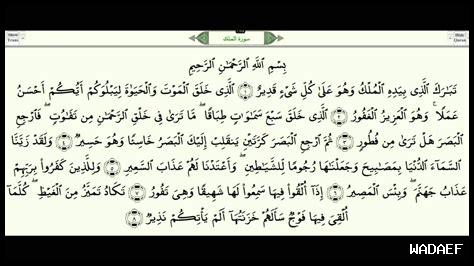 Show
Trans
سورة الملك
Hide
Quran
بِسْمِ اللَّهِ الرَّحْمَٰنِ الرَّحِيمِ
تَبَارَكَ الَّذِي بِيَدِهِ الْمُلْكُ وَهُوَ عَلَىٰ كُلِّ شَيْءٍ قَدِيرٌ ﴿١﴾ الَّذِي خَلَقَ الْمَوْتَ وَالْحَيَاةَ لِيَبْلُوَكُمْ أَيُّكُمْ أَحْسَنُ
عَمَلًا ۚ وَهُوَ الْعَزِيزُ الْغَفُورُ ﴿٢﴾ الَّذِي خَلَقَ سَبْعَ سَمَاوَاتٍ طِبَاقًا ۖ مَّا تَرَىٰ فِي خَلْقِ الرَّحْمَٰنِ مِن تَفَاوُتٍ ۖ فَارْجِعِ
الْبَصَرَ هَلْ تَرَىٰ مِن فُطُورٍ ﴿٣﴾ ثُمَّ ارْجِعِ الْبَصَرَ كَرَّتَيْنِ يَنقَلِبْ إِلَيْكَ الْبَصَرُ خَاسِئًا وَهُوَ حَسِيرٌ ﴿٤﴾ وَلَقَدْ زَيَّنَّا
السَّمَاءَ الدُّنْيَا بِمَصَابِيحَ وَجَعَلْنَاهَا رُجُومًا لِّلشَّيَاطِينِ ۖ وَأَعْتَدْنَا لَهُمْ عَذَابَ السَّعِيرِ ﴿٥﴾ وَلِلَّذِينَ كَفَرُوا بِرَبِّهِمْ
عَذَابُ جَهَنَّمَ ۖ وَبِئْسَ الْمَصِيرُ ﴿٦﴾ إِذَا أُلْقُوا فِيهَا سَمِعُوا لَهَا شَهِيقًا وَهِيَ تَفُورُ ﴿٧﴾ تَكَادُ تَمَيَّزُ مِنَ الْغَيْظِ ۖ كُلَّمَا
أُلْقِيَ فِيهَا فَوْجٌ سَأَلَهُمْ خَزَنَتُهَا أَلَمْ يَأْتِكُمْ نَذِيرٌ ﴿٨﴾
WADAEF